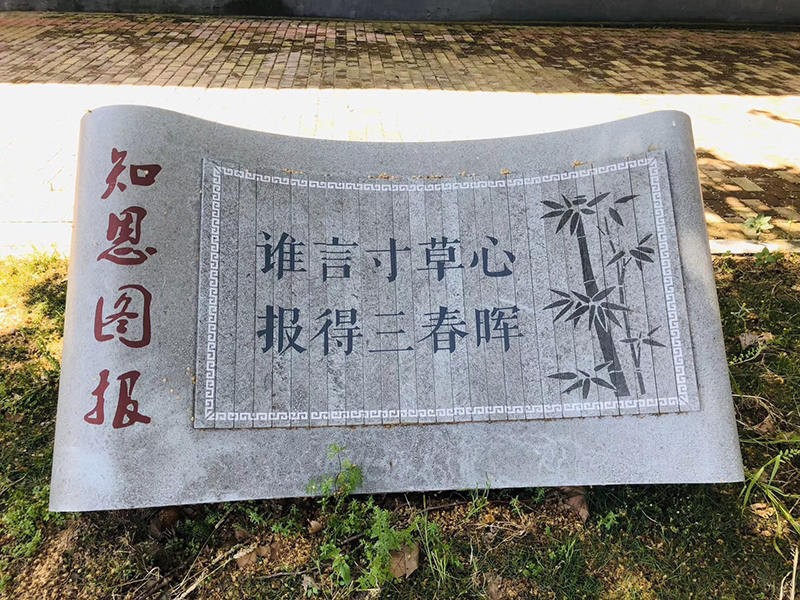 知恩图报
谁言寸草心
报得三春晖